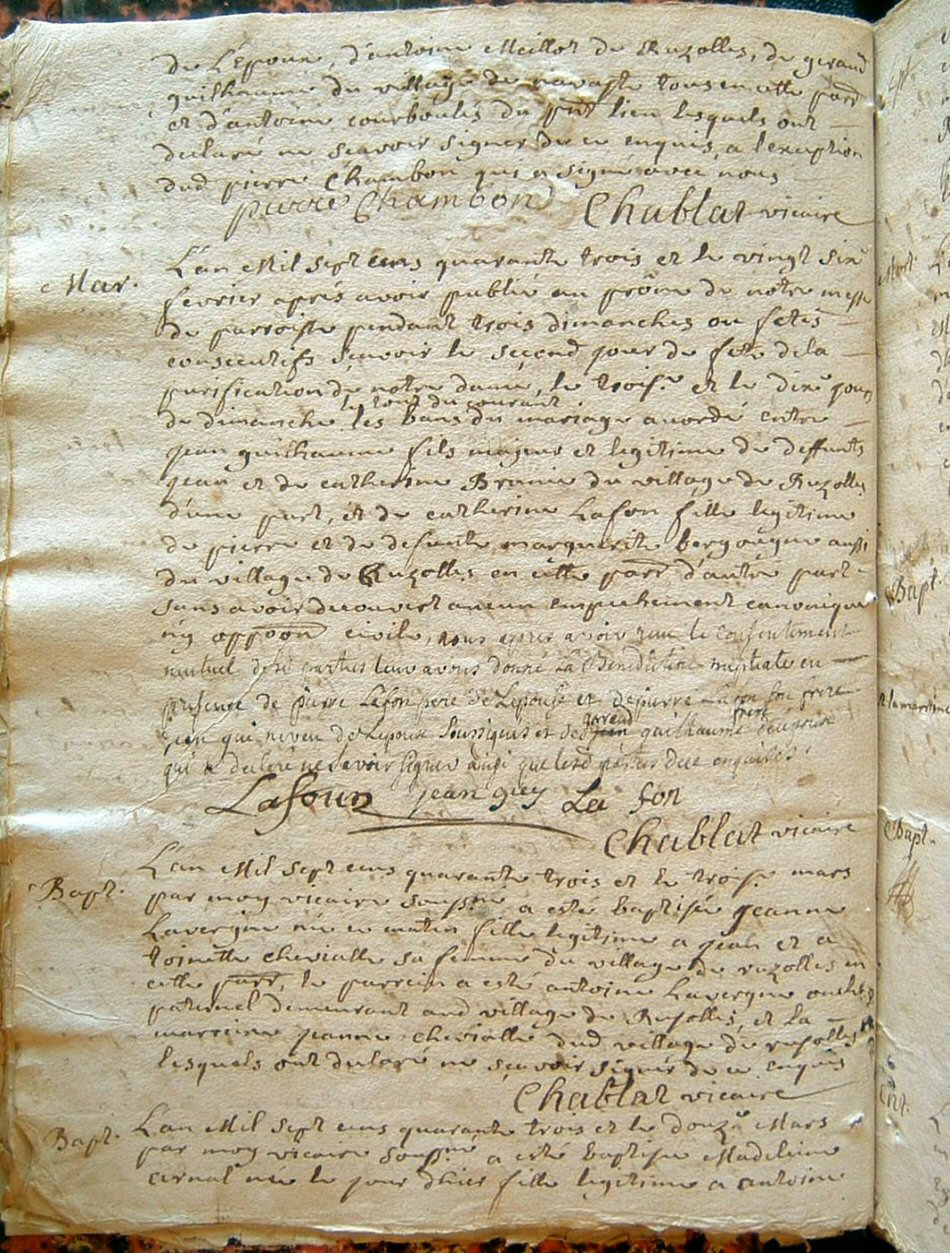 de L'Epouse, d'antoine Meillot de Ruzolles, de geraud
guilhaume du village de tous en cette parr
et d'antoine courboulés du pnt lieu lesquels ont
declaré ne scavoir signer de ce enquis, a l'exception
dud pierre Chambon qui a signé avec nous
pierre Chambon Chablat vicaire
Mar.
L'an Mil sept cens quarante trois et le vingt six
fevrier aprés avoir publié au prône de notre messe
de parroisse pendant trois dimanches ou fetes
consecutifs scavoir le second jour de fete de la
purification de notre dame, le trois.e et le dix.e jour
le tout du courant
de dimanche les bans du mariage accordé entre
jean guilhaume fils majeur et legitime de deffunts
jean et de catherine Brunie du village de Ruzolles
d'une part, et de catherine Lafon fille legitime
de pierre et de defunte marguerite bergougne aussi
du village de Ruzolles en cette parr d'autre part
sans avoir decouvert aucun empechement canonique
ny oppoon civile, nous apres avoir recu le consentement
mutuel desd parties leur avons donné La Benediction nuptiale en
presence de pierre Lafon pere de Lepouse et de pierre Lafon son frere
jean guy neveu de Lepouse soussignés et de guilhaume
geraud frere
qui a declaré ne scavoir signer ainsi que lesd parties de ce enquises
Lafoun jean guy La fon
Chablat vicaire
Bapt.
L'an Mil sept cens quarante trois et le trois.e mars
par moy vicaire soussne a esté baptisée jeanne
Lavergne née ce matin fille legitime a jean et a
toinette chevialle sa femme du village de ruzolles en
cette parr, le parrein a esté antoine Lavergne oncle
paternel demeurant aud village de Rusolles, et la
marreine jeanne chevialle dud village de rusolles
lesquels ont declaré ne scavoir signer de ce enquis
Chablat vicaire
Bapt.
L'an Mil sept cens quarante trois et le douz.e Mars
par moy vicaire soussné a esté baptisée Madeleine
arnal née le jour d'hier fille legitime a antoine
Bapt.
Bapt.